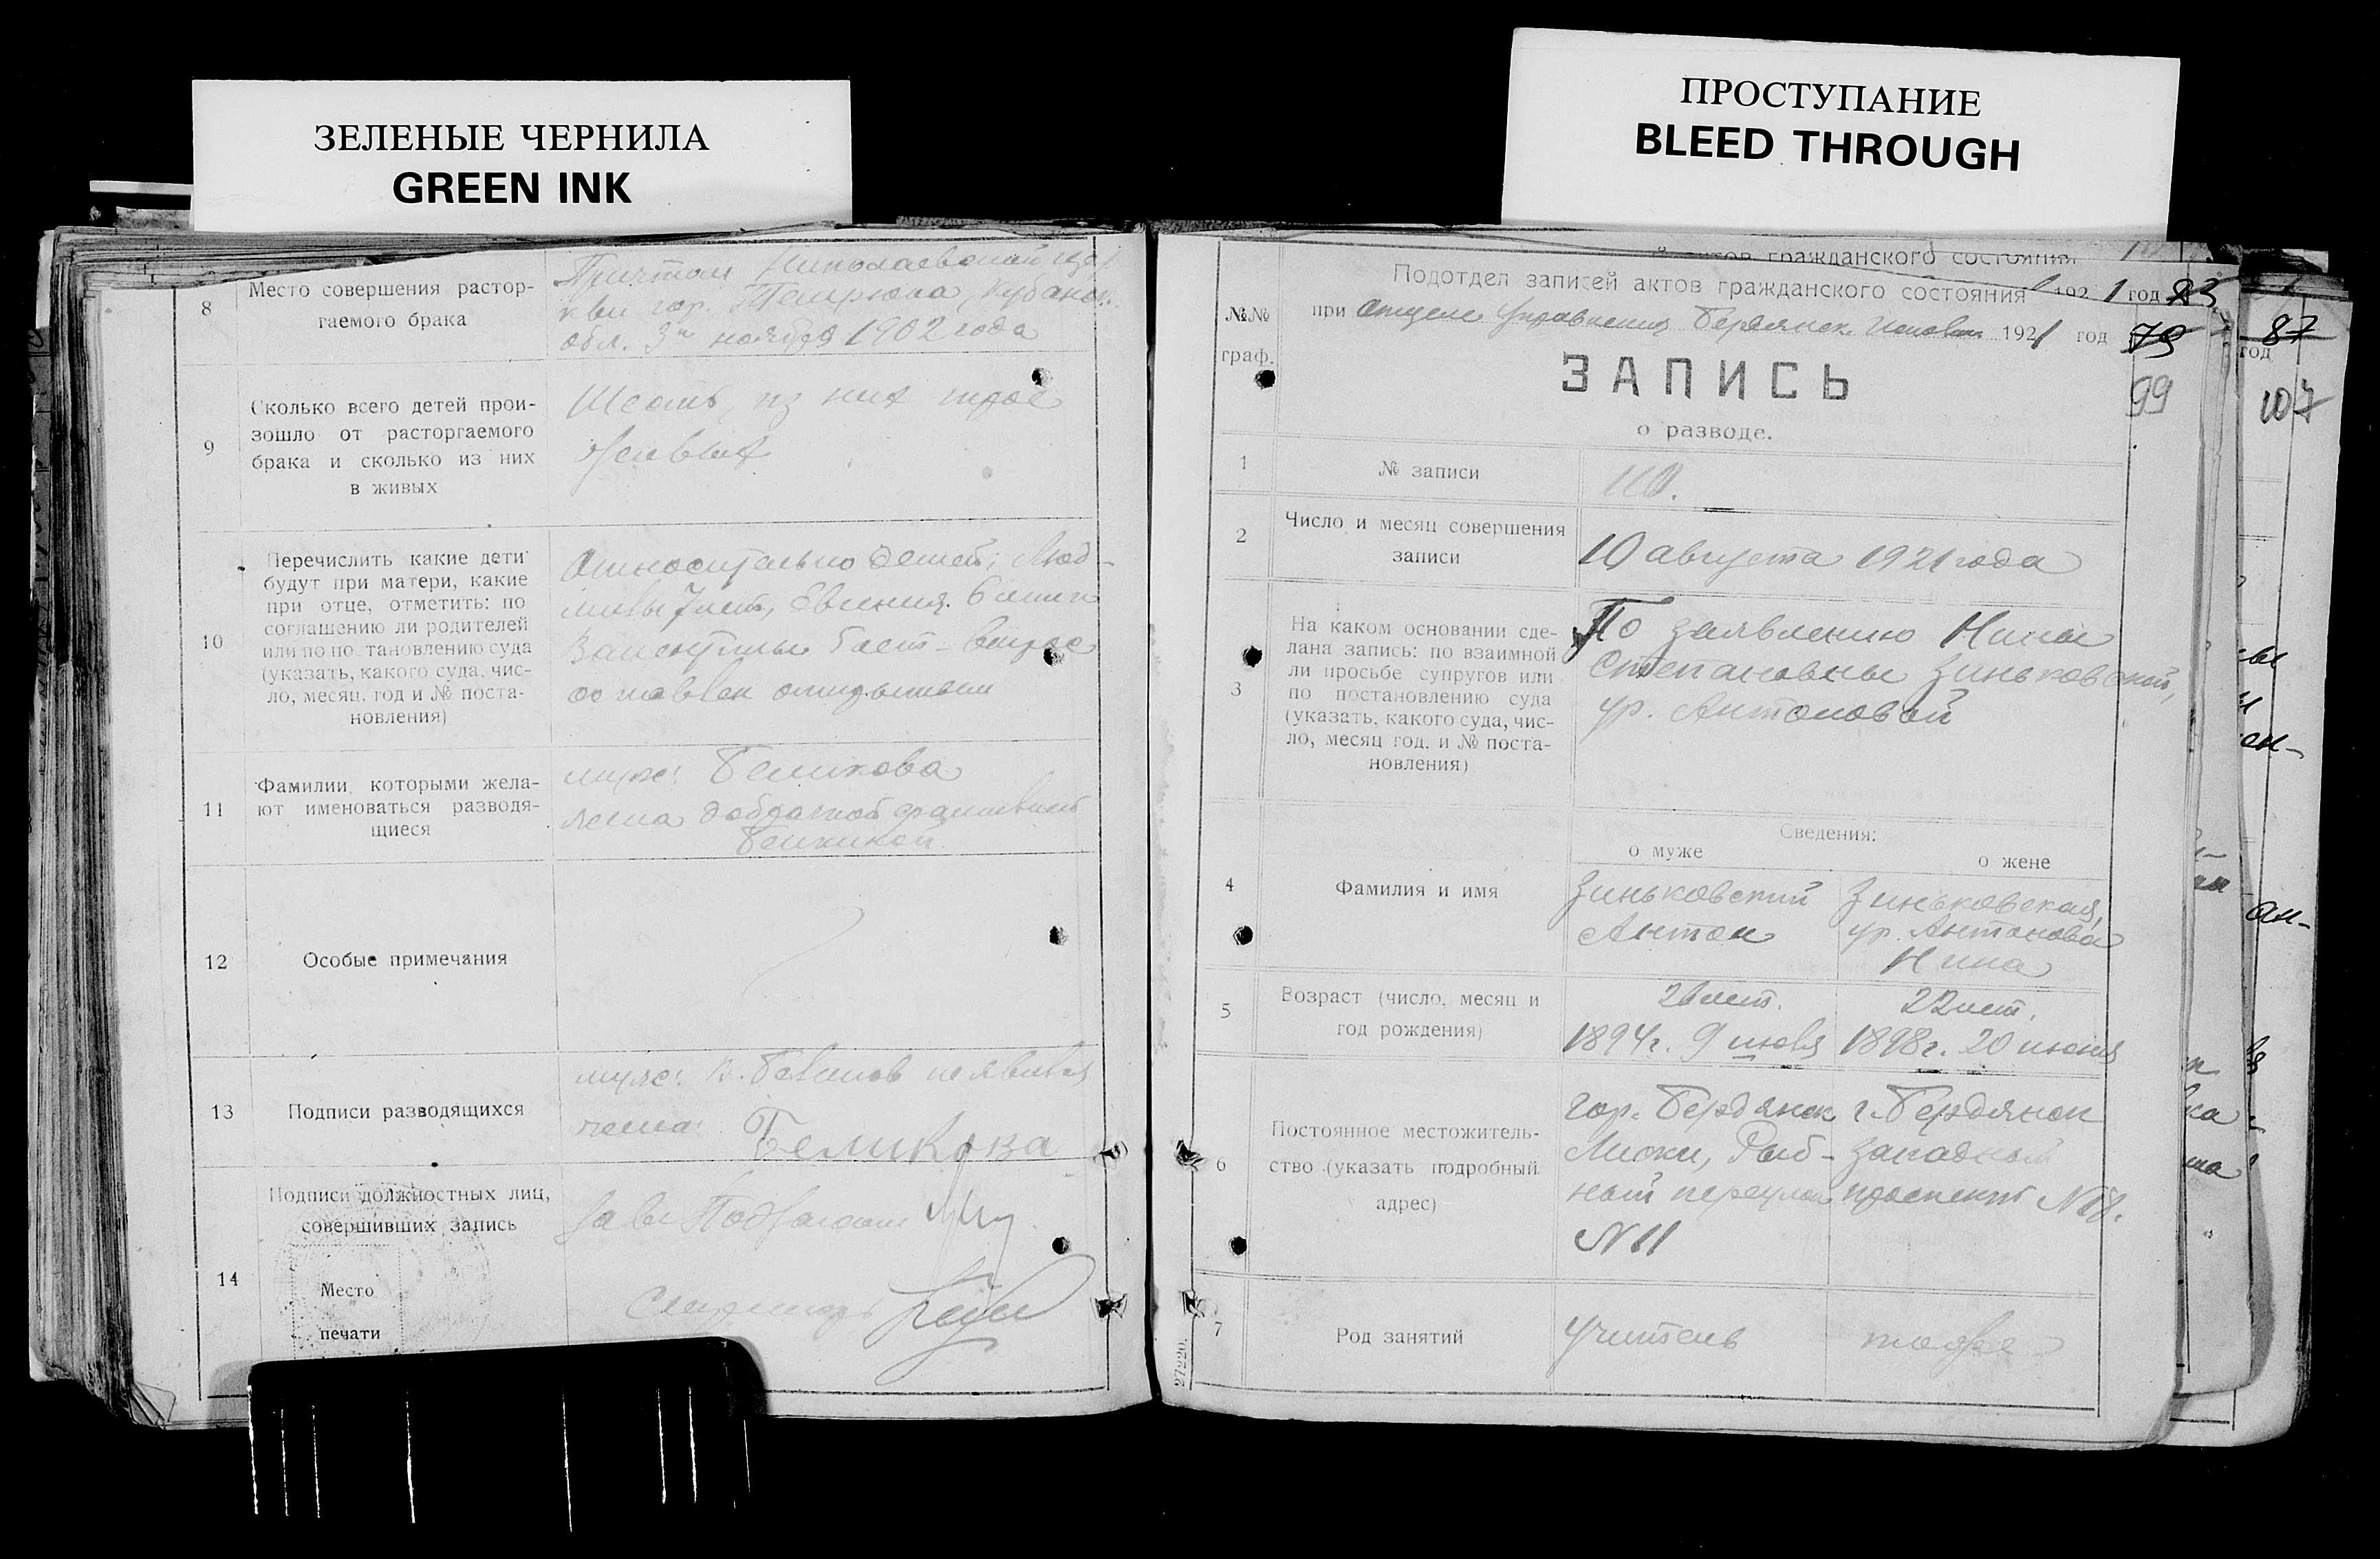 ЗЕЛЕНЫЕ ЧЕРНИЛА
GREEN INK
ПРОСТУПАНИЕ
BLEED THROUGH
8
Место совершения растор-
гаемого брака
Причтом Николаевской цер
кви гор. Темрюка, Кубанск.
обл. 3го ноября 1902 года
9
Сколько всего детей прои-
зошло от расторгаемого
брака и сколько из них
в живых
Шесть, из них трое
живых
10
Перечислить какие дети
будут при матери, какие
при отце, отметить: по
соглашению ли родителей
или по по тановлению суда
(указать, какого суда, чис-
ло, месяц, год и № поста-
новления)
Относительно детей: Люд-
милы 7 лет, Евгения 6 лет и
Валентины 5 лет - вопрос
оставлен открытым
11
Фамилии, которыми жела-
ют именоваться разводя-
щиеся
муж: Беликова
жена добрачной фамилией
12
Особые примечания
13
Подписи разводящихся
муж: не явился
жена: Беликова
14
Подписи должностных лиц,
совершивших запись
Место
печати
Зав.
гражданского состояния
192 1 год 83
Подотдел записей актов гражданского состояния
при отделе Управления Бердянск. Исполком 1921 год
79
99
87
год
107
№№
граф.
ЗАПИСЬ
о разводе.
1
№ записи
110.
2
Число и месяц совершения
записи
10 августа 1921 года
3
На каком основании сде-
лана запись: по взаимной
ли просьбе супругов или
по постановлению суда
(указать, какого суда, чис-
ло, месяц год. и № поста-
новления)
По заявлению Нины
Степановны Зиньковской,
ур. Антоновой
Сведения:
о муже
о жене
4
Фамилия и имя
Зиньковский
Антон
Зиньковская,
ур. Антонова
Нина
5
Возраст (число, месяц и
год рождения)
26 лет.
1894г. 9 июля
22 лет.
1898г. 20 июня
6
Постоянное местожитель-
ство (указать подробный
адрес)
гор. Бердянск
Лиски, Рыб-
ный переулок
N 11
г. Бердянск
Западный
проспект N 18.
7
Род занятий
учитель
27220.